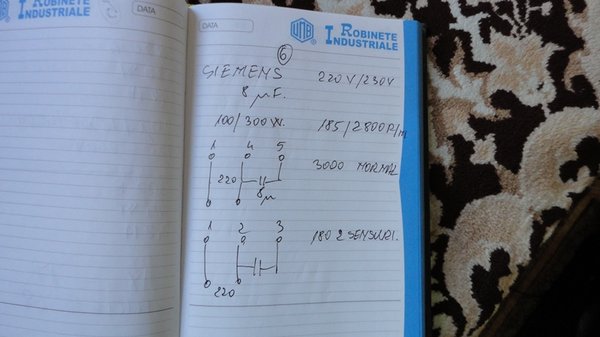 ROBINETE
INDUSTRIALE
DATA
DATA
UNB
ROBINETE
INDUSTRIALE
6
SIEMENS 220V/230V
8 µF.
100/300W. 185/2800R/m
1 4 5
3000 NORMAL
220
8µ
1 2 3
180 2 SENSURI.
220